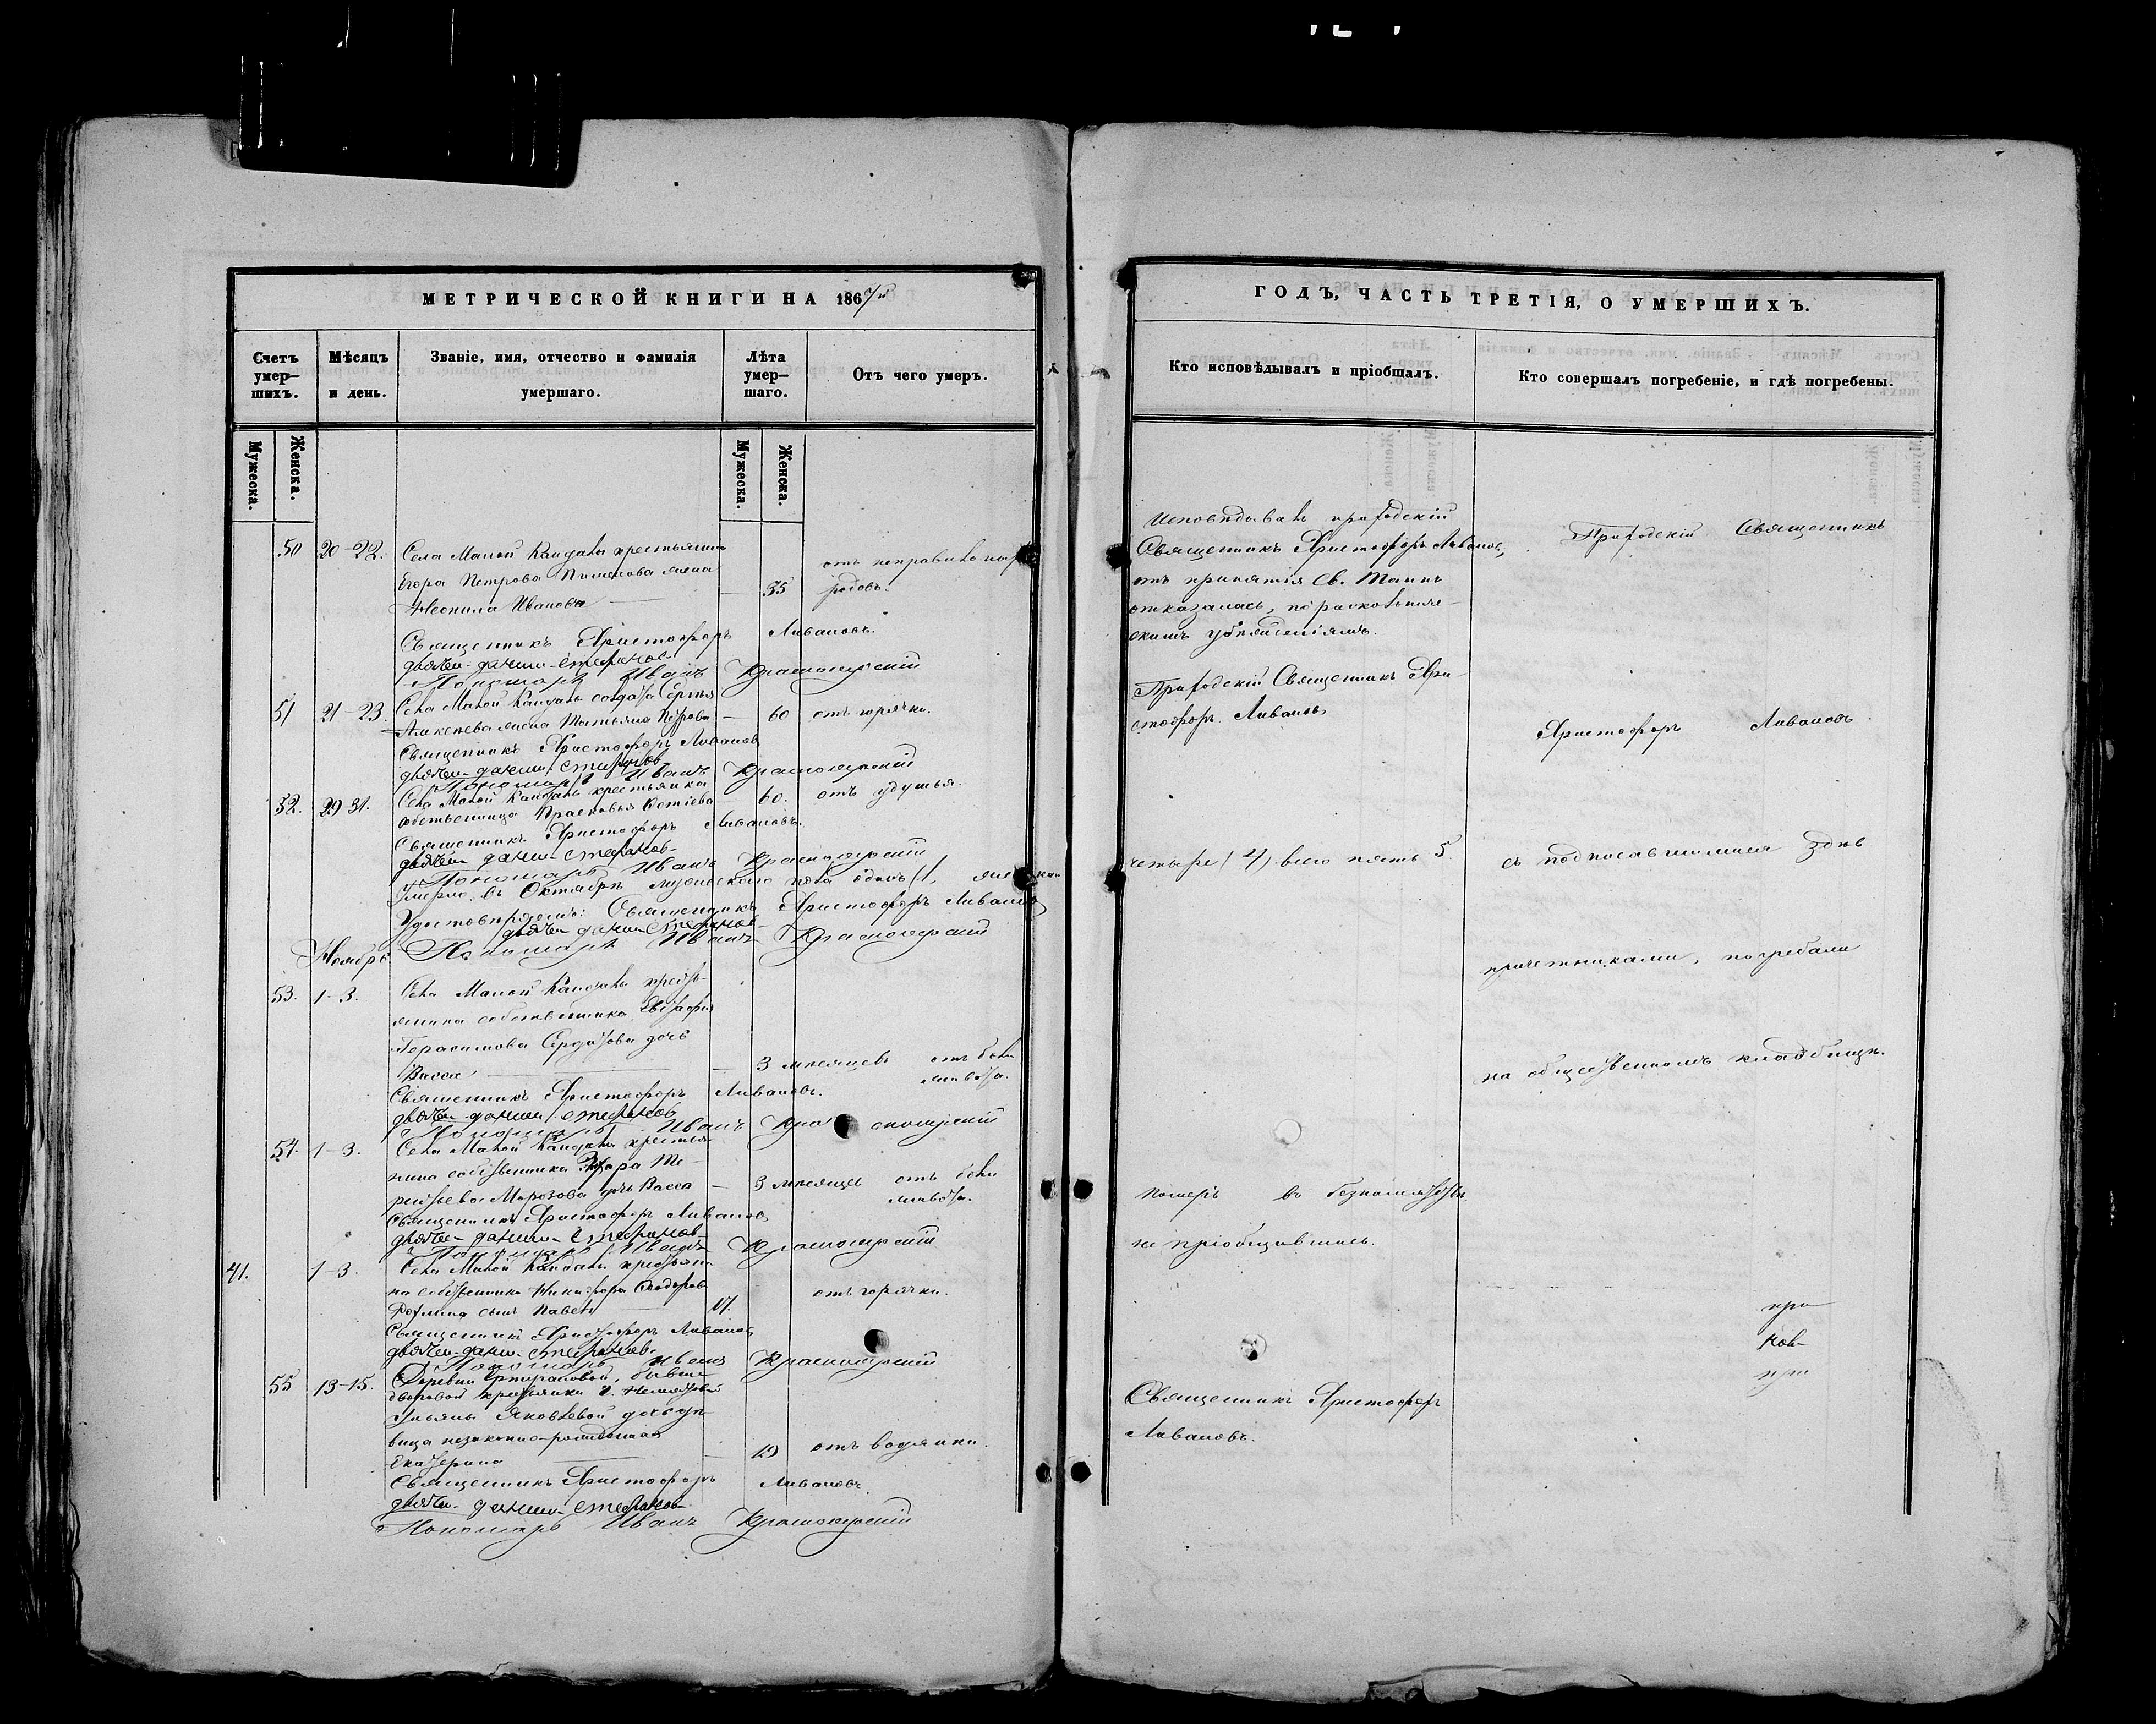 МЕТРИЧЕСКОЙ КНИГИ НА 1867й
Счетъ умер-шихъ.
Мѣсяцъ и день.
Званіе, имя, отчество и фамилія умершаго.
Лѣта умер-шаго.
Отъ чего умеръ.
Мужеска.
Женска.
Мужеска.
Женска.
50 20-22. Села Малой Кандалы крестьянина
Егора Петрова жена
Неонила Иванова — 35 отъ неправильныхъ родовъ.
Священникъ Христофоръ Ливановъ.
Дьячекъ Данилъ Стефановъ
Пономарь Иванъ Красноярскій
51 21-23. Села Малой Кандалы солдата Сергѣя
жена Татьяна Петрова — 60 отъ горячки.
Священникъ Христофоръ Ливановъ
Дьячекъ Данилъ Стефановъ
Пономарь Иванъ Красноярскій
52. 29 31. Села Малой Кандалы крестьянка
собственница Прасковья 60. отъ удушья.
Священникъ Христофоръ Ливановъ.
Дьячекъ Данилъ Стефановъ
Пономарь Иванъ Красноярскій
Умерло въ Октябрѣ мужескаго пола одинъ (1,
Удостовѣряемъ: Священникъ Христофоръ Ливановъ
Дьячекъ Данилъ Стефановъ
Ноябрь Пономарь Иванъ Красноярскій
53. 1-3. Села Малой Кандалы кресть-
янина собственника
Герасимова дочь
Васса — 3 мѣсяцевъ отъ боли живота.
Священникъ Христофоръ Ливановъ.
Дьячекъ Данилъ Стефановъ
Пономарь Иванъ Красноярскій
54. 1-3. Села Малой Кандалы крестья-
нина собственника
Морозова дочь Васса — 3 мѣсяцевъ отъ боли живота.
Священникъ Христофоръ Ливановъ
Дьячекъ Данилъ Стефановъ
Пономарь Иванъ Красноярскій
41. 1-3. Села Малой Кандалы крестьяни-
на собственника Никифора Ѳеодорова
сынъ Павелъ — 17. отъ горячки.
Священникъ Христофоръ Ливановъ
Дьячекъ Данилъ Стефановъ
Пономарь Иванъ Красноярскій
55 13-15. Деревни бывшей
дворовой крестьянки
Ульяны Яковлевой дочь дѣ-
вица незаконно-рожденная
Екатерина — 19 отъ водянки.
Священникъ Христофоръ Ливановъ.
Дьячекъ Данилъ Стефановъ
Пономарь Иванъ Красноярскій
ГОДЪ, ЧАСТЬ ТРЕТІЯ, О УМЕРШИХЪ.
Кто исповѣдывалъ и пріобщалъ.
Кто совершалъ погребеніе, и гдѣ погребены.
Исповѣдывалъ приходскій
Священникъ Христофоръ Ливановъ,
отъ принятія Св. Таинъ
отказалась, по раскольниче-
скимъ убѣжденіямъ.
Приходскій Священникъ Хри-
стофоръ Ливановъ
четыре (4) всего пять 5.
Померъ въ безпамятствѣ,
не пріобщившись.
Священникъ Христофоръ
Ливановъ.
Приходскій Священникъ
Христофоръ Ливановъ
съ подписавшимися здѣсь
причетниками, погребали
на общественномъ кладбищѣ.